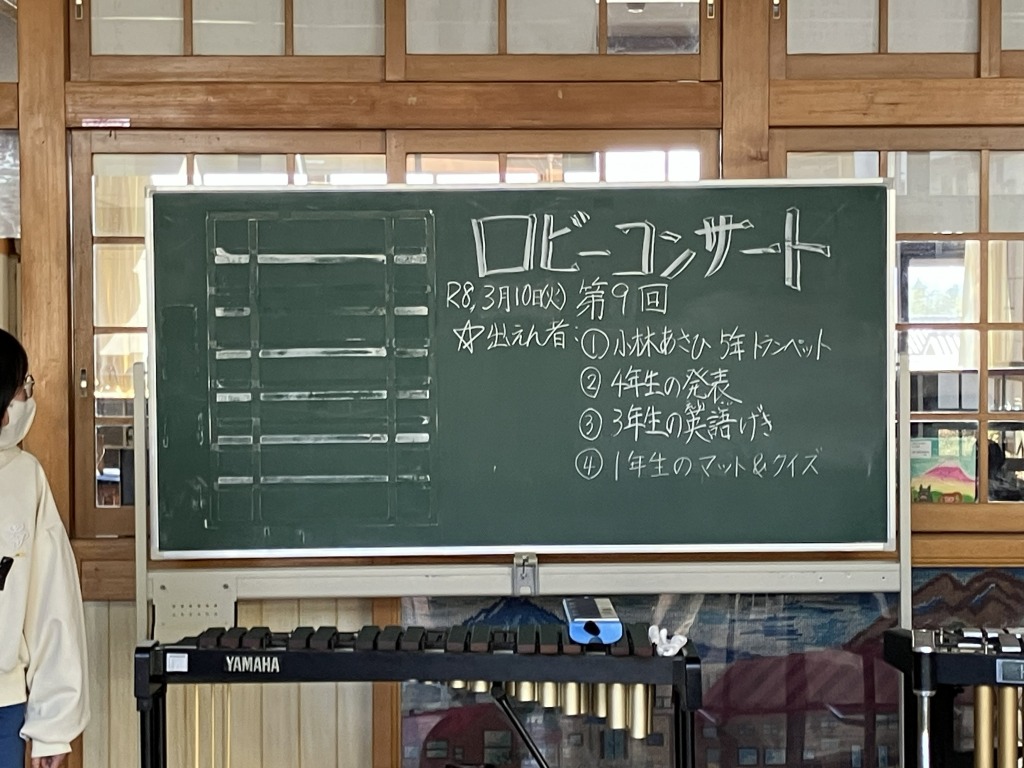 ロビーコンサート
R8,3月10日(火) 第9回
☆出えん者:①小林あさひ 5年 トランペット
②4年生の発表
③3年生の英語げき
④1年生のマット&クイズ
YAMAHA